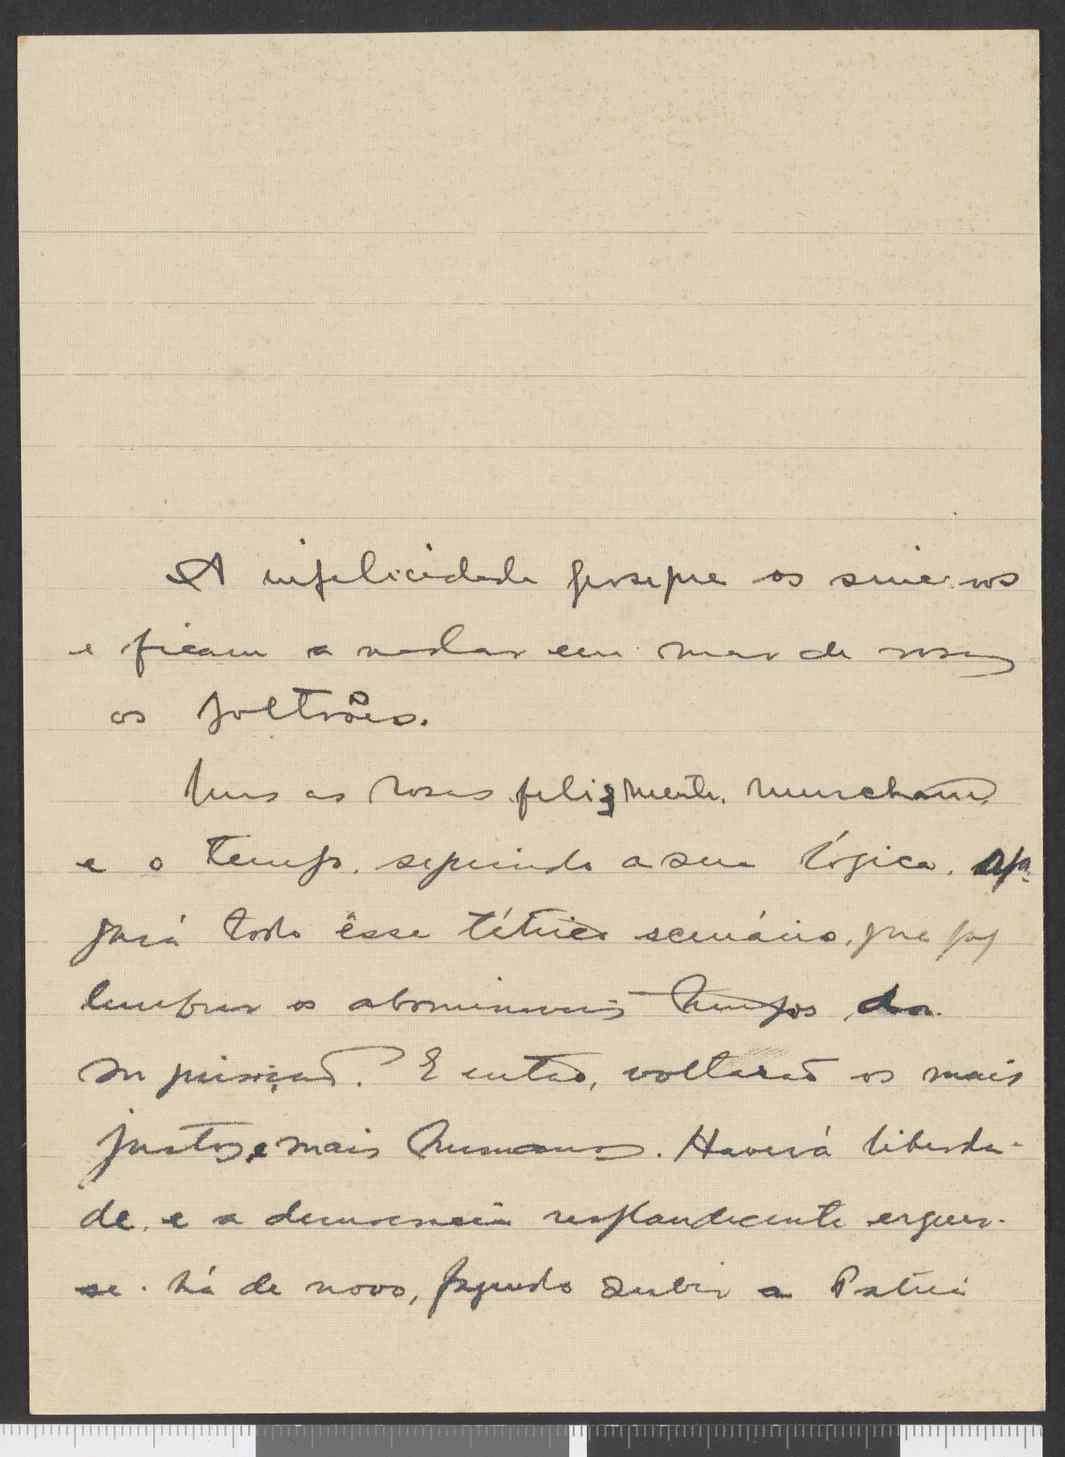 A infelicidade persegue os sinceros
e ficam a nadar em mar de rosas
os poltrões.
Mas as rosas felizmente murcham
e o tempo, seguindo a sua lógica, apa-
gará todo êsse tétrico scenário, que faz
lembrar os abominaveis tempos da
In quisição. E então, voltarão os mais
justos, e mais humanos. Haverá liberda-
de e a democracia resplandecente erguer-
se-há de novo, fazendo subir a Patria